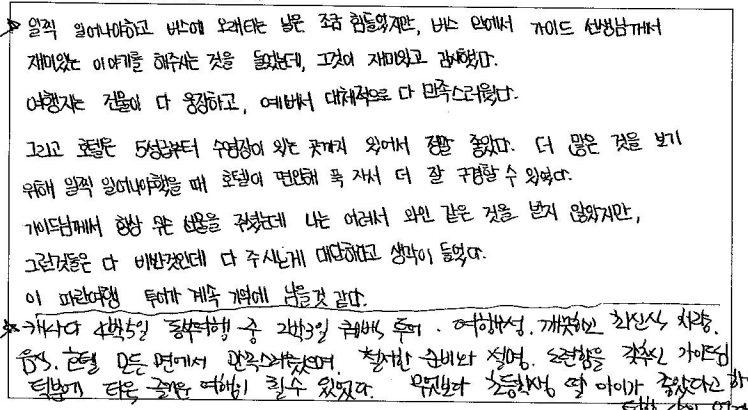 일찍 일어나야하고 버스에 오래타는 날은 조금 힘들었지만, 버스 안에서 가이드 선생님께서
재미있는 이야기를 해주시는 것을 들었는데, 그것이 재미있고 감사했다.
여행지는 건물이 다 웅장하고, 예뻐서 대체적으로 다 만족스러웠다.
그리고 호텔은 5성급부터 수영장이 있는 곳까지 있어서 정말 좋았다. 더 많은 것을 보기
위해 일찍 일어나야했을 때 호텔이 편안해 푹 자서 더 잘 구경할 수 있었다.
가이드님께서 항상 무슨 선물을 주셨는데 나는 어려서 와인 같은 것을 받지 않았지만,
그런것들은 다 비싼것인데 다 주시는게 대단하다고 생각이 들었다.
이 파란여행 투어가 계속 기억에 남을것 같다.
캐나다 4박5일 동부여행 중 2박3일 퀘벡 투어. 여행구성, 깨끗하고 최신식 차량,
음식, 호텔 모든 면에서 만족스러웠으며, 철저한 준비와 설명, 노련함을 갖추신 가이드님
덕분에 더욱 즐거운 여행이 될 수 있었다. 무엇보다 초등학생 딸 아이가 좋았다고 하